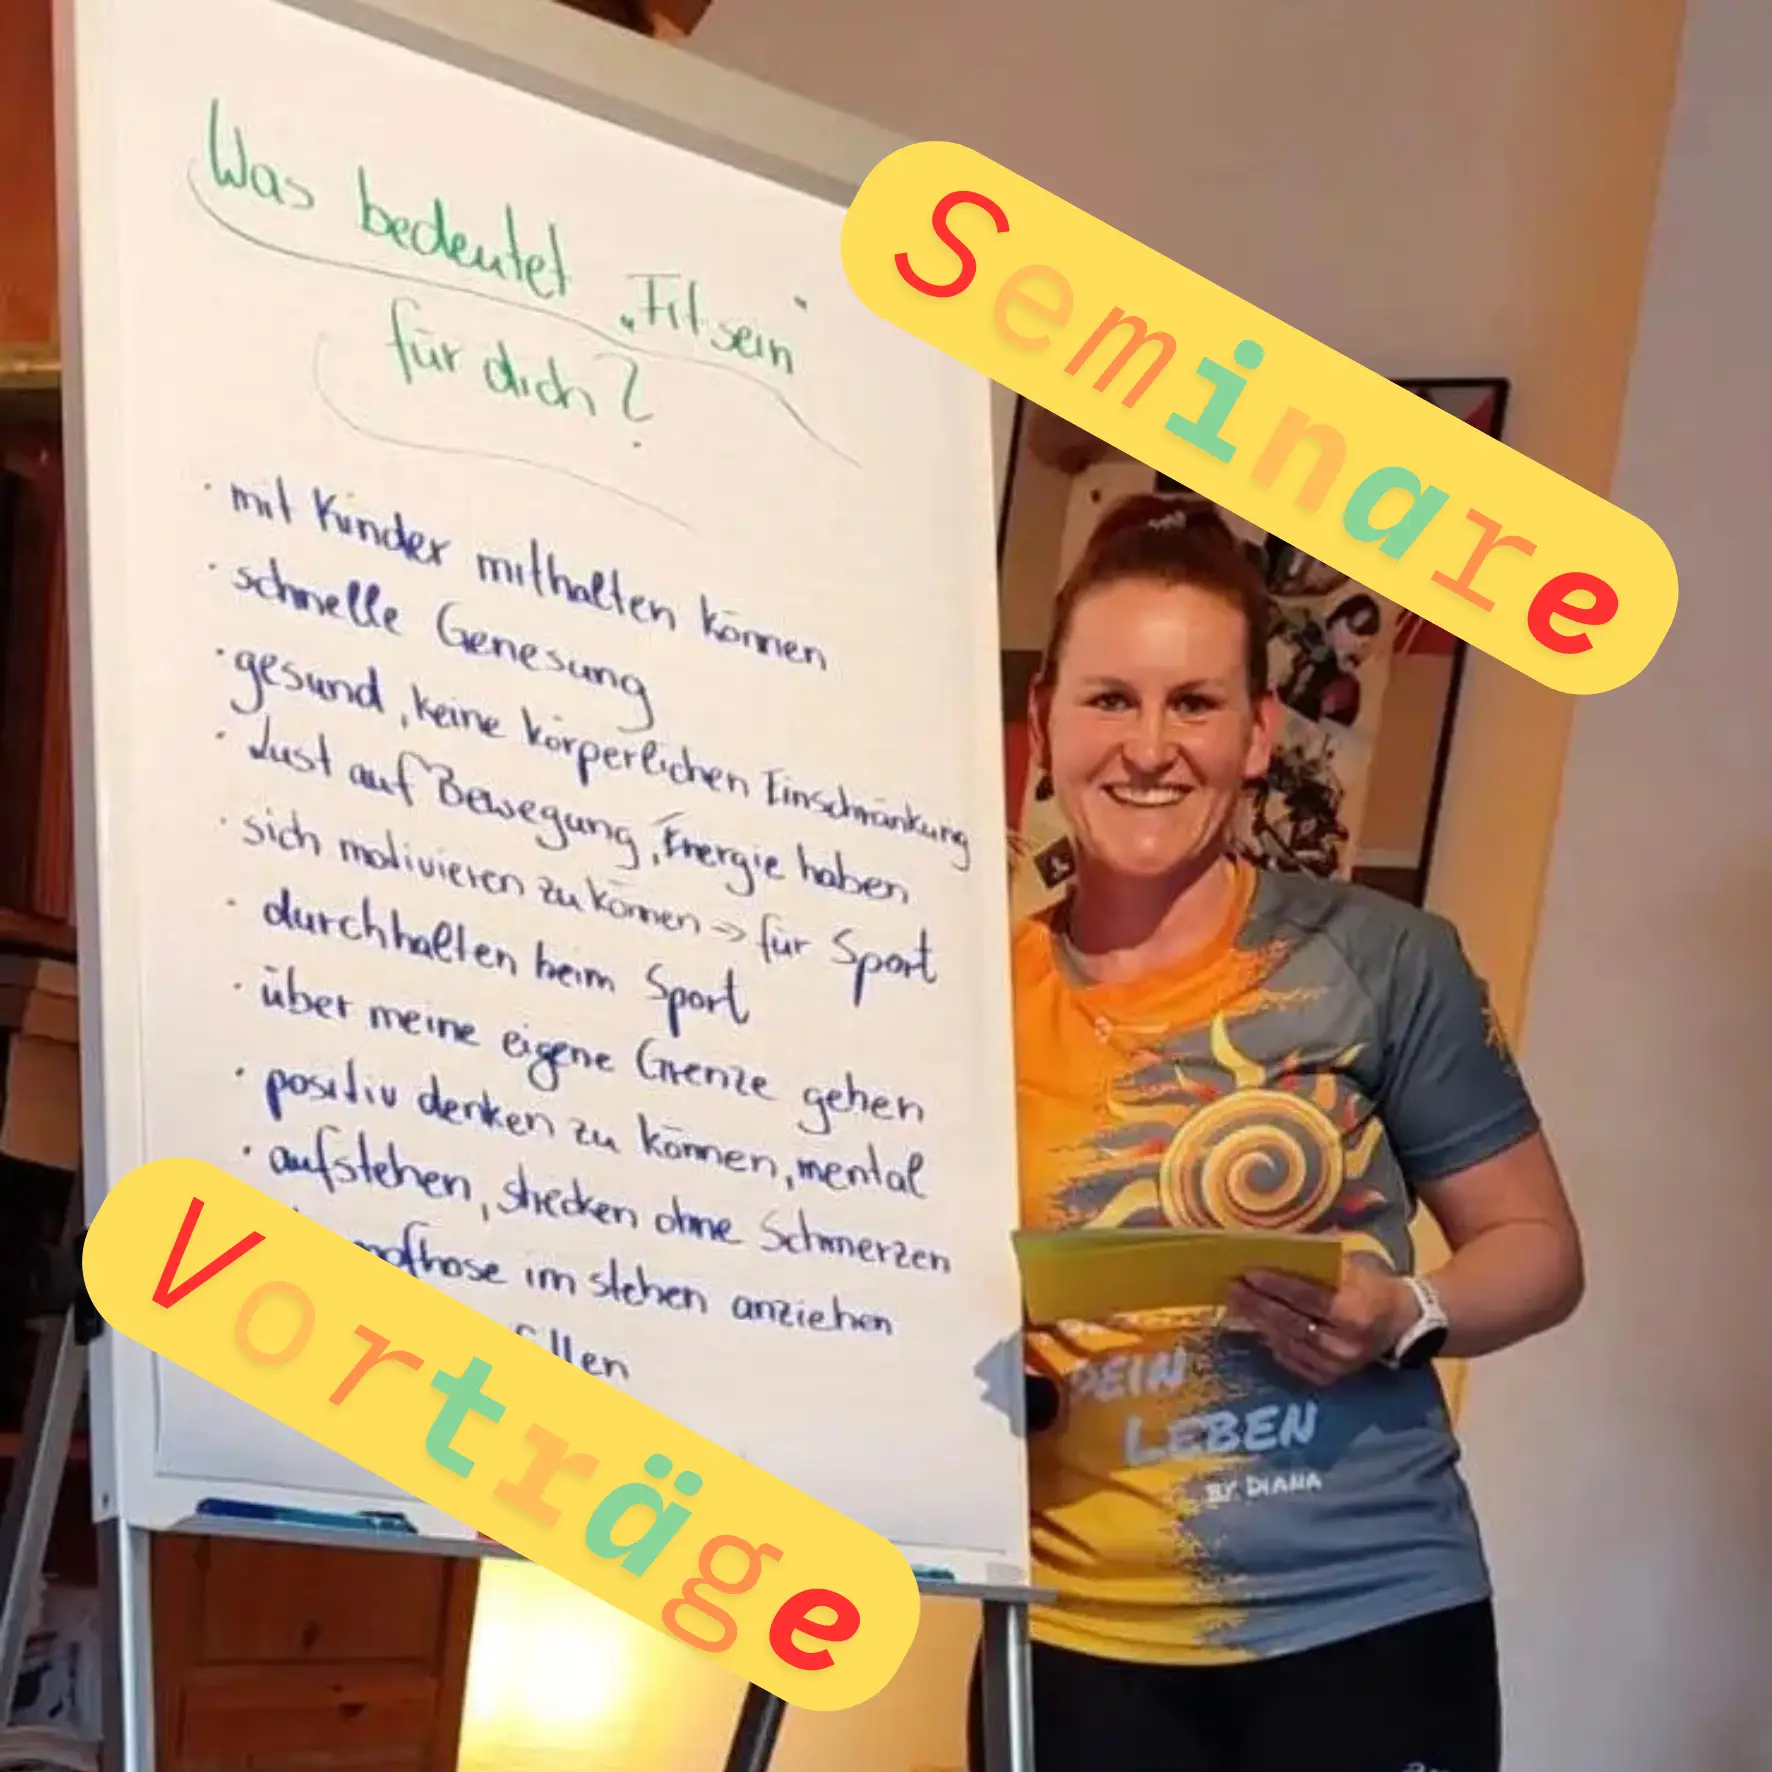 Was bedeutet „Fit sein"
für dich?
· mit Kinder mithalten können
· schnelle Genesung
· gesund, keine körperlichen Einschränkung
· Lust auf Bewegung, Energie haben
· sich motivieren zu können => für Sport
· durchhalten beim Sport
· über meine eigene Grenze gehen
· positiv denken zu können, mental
· aufstehen, strecken ohne Schmerzen
im stehen anziehen
Seminare
Vorträge
DEIN
LEBEN
BY DIANA